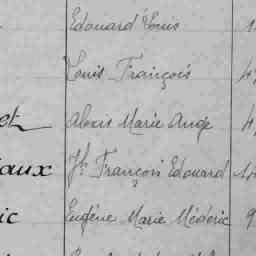 Edouard Louis
Louis François
Alexis Marie Ange
Jh François Edouard
aux
Eugène Marie Médéric
ic